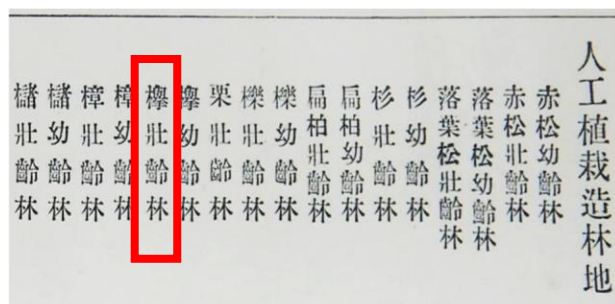 人工植栽造林地
赤松幼齡林
赤松壯齡林
落葉松幼齡林
落葉松壯齡林
杉幼齡林
杉壯齡林
扁柏幼齡林
扁柏壯齡林
櫟幼齡林
櫟壯齡林
栗壯齡林
欅幼齡林
欅壯齡林
樟幼齡林
樟壯齡林
櫧幼齡林
櫧壯齡林